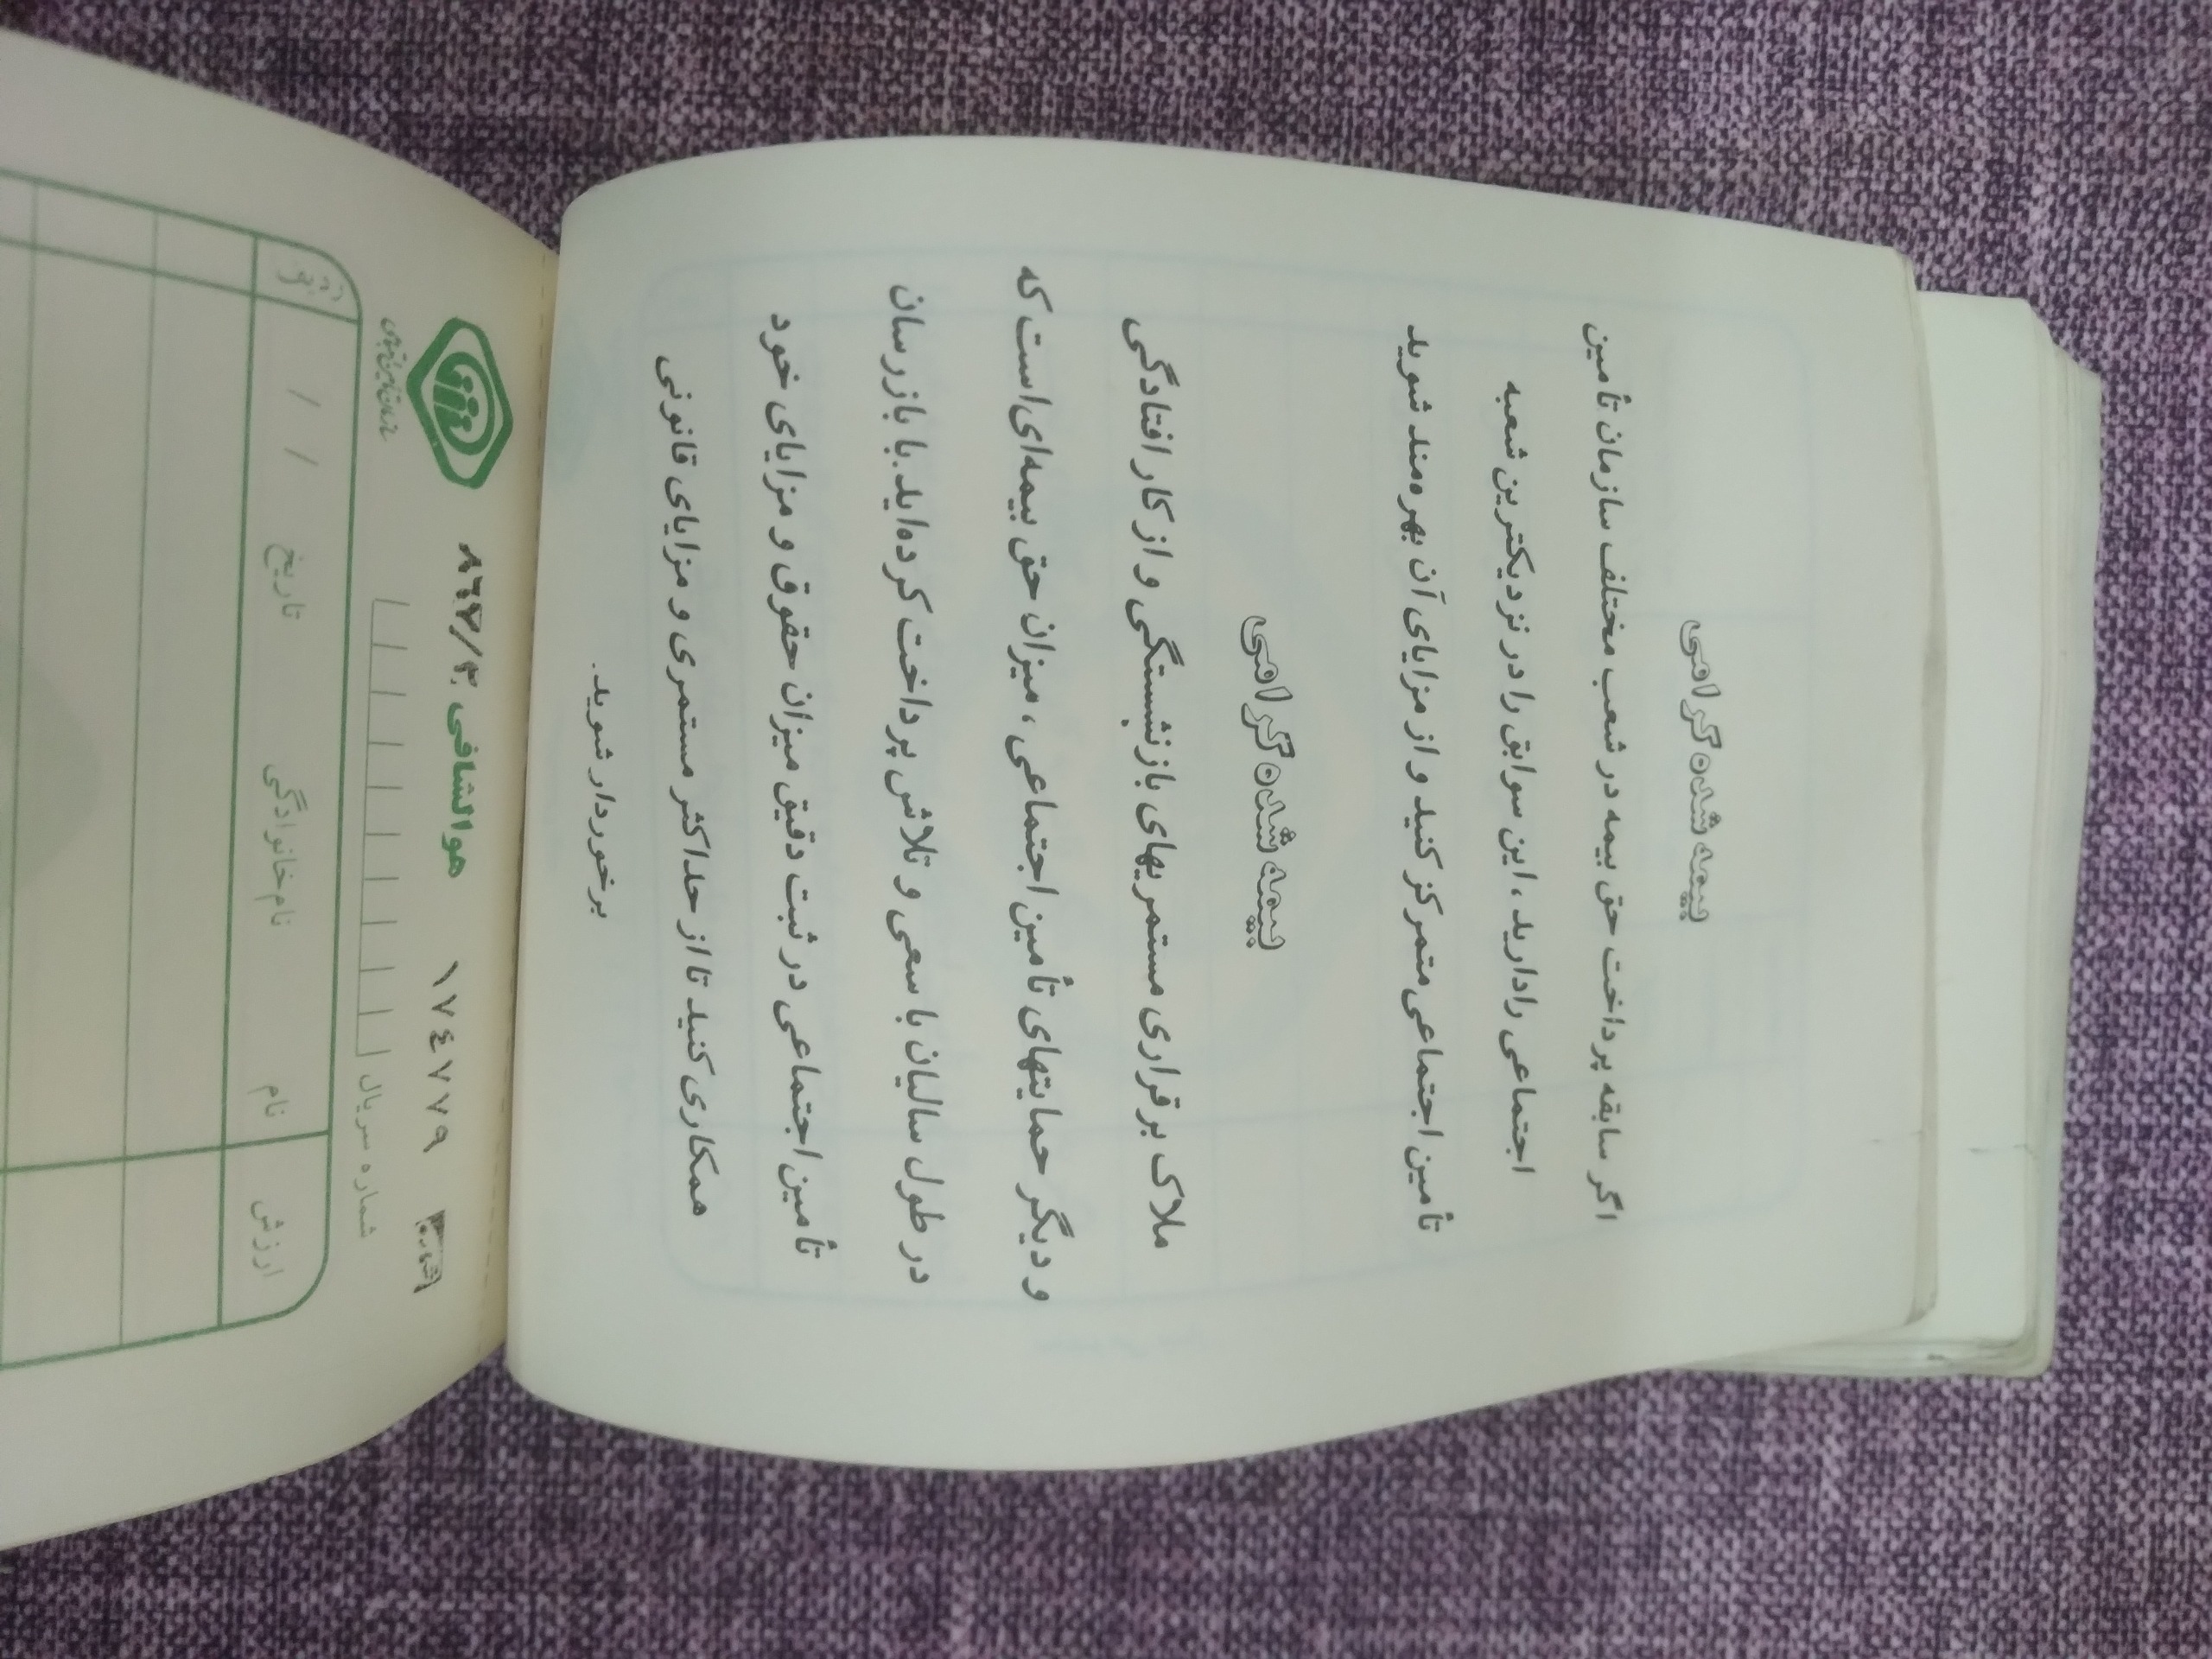 بیمه شده گرامی
اگر سابقه پرداخت حق بیمه در شعب مختلف سازمان تأمین
اجتماعی را دارید، این سوابق را در نزدیکترین شعبه
تأمین اجتماعی متمرکز کنید و از مزایای آن بهره‌مند شوید
بیمه شده گرامی
ملاک برقراری مستمریهای بازنشستگی و از کار افتادگی
و دیگر حمایتهای تأمین اجتماعی، میزان حق بیمه‌ای است که
در طول سالیان با سعی و تلاش پرداخت کرده‌اید. با بازرسان
تأمین اجتماعی در ثبت دقیق میزان حقوق و مزایای خود
همکاری کنید تا از حداکثر مستمری و مزایای قانونی
برخوردار شوید.
۱۷٤۷۷۹ هوالشافی
شماره سریال
ارزش نام نام خانوادگی تاریخ / /